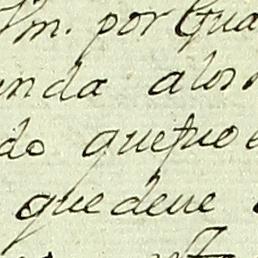 Vm. por Qua
nda alos
do quepuo
quedeve